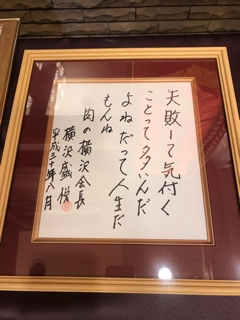 失敗して気付く
ことって多いんだ
よねだって人生だ
もんね
肉の横沢会長
横沢盛悦
平成三十年八月